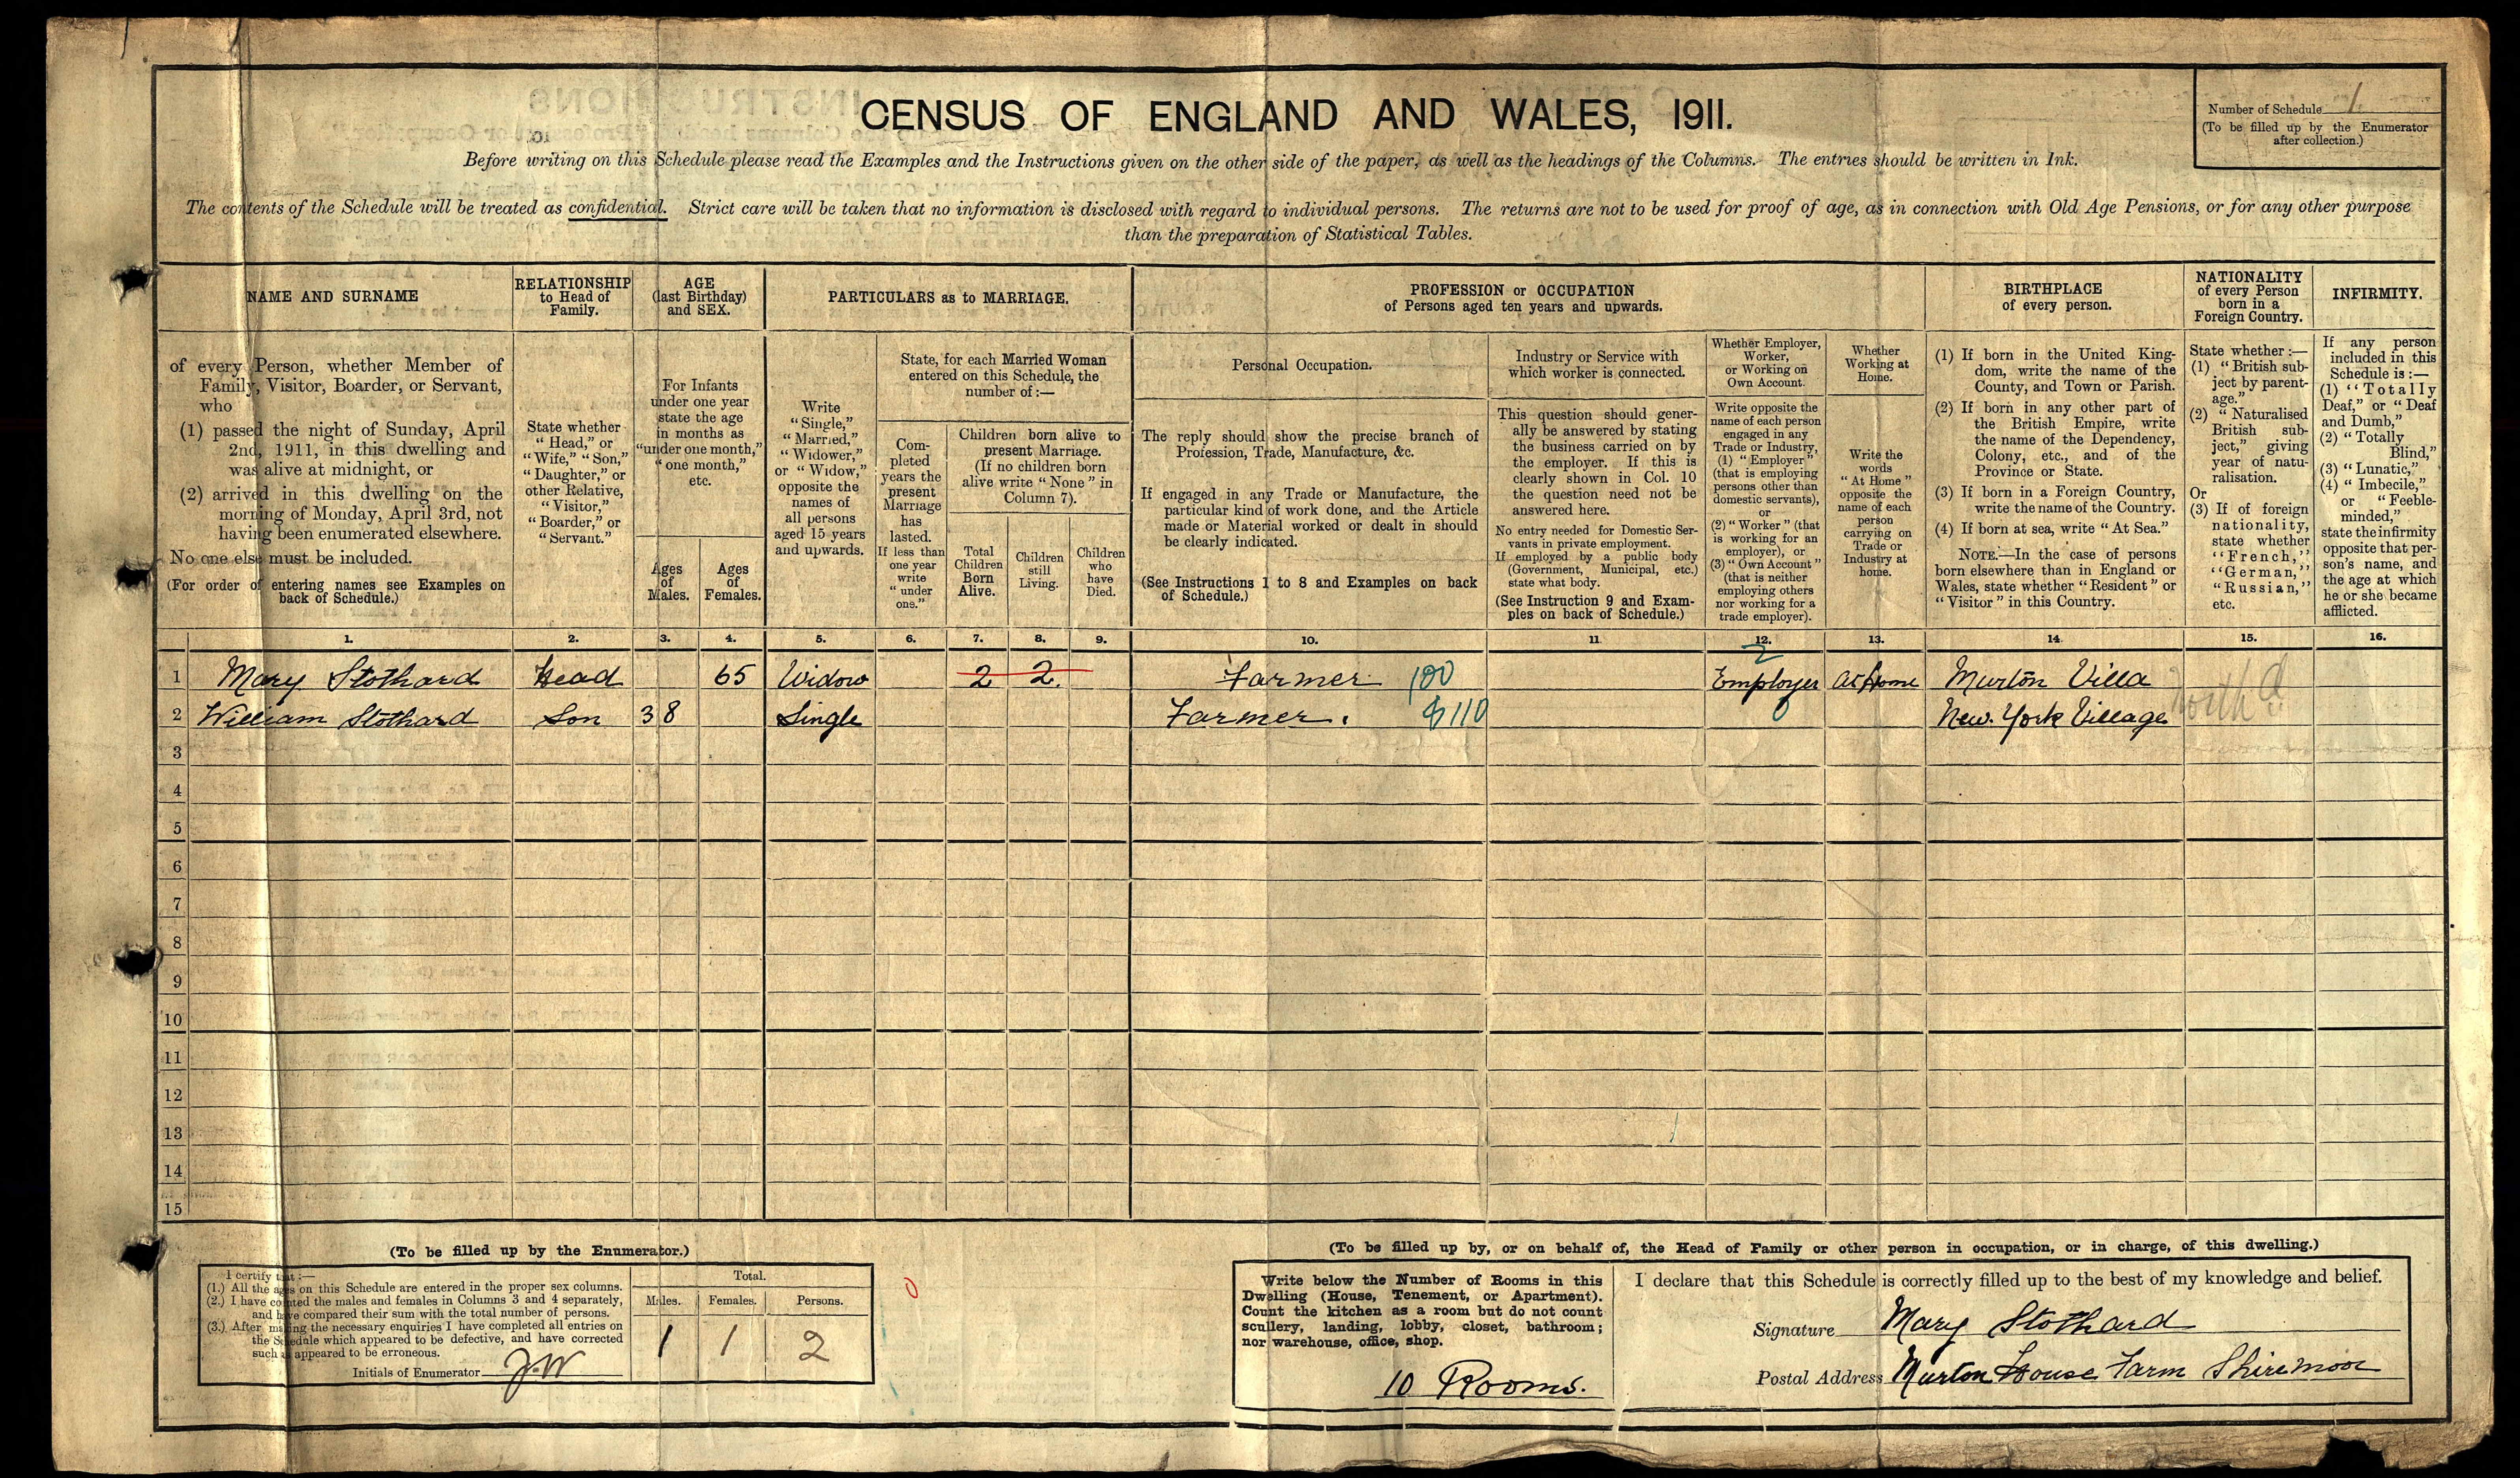 CENSUS OF ENGLAND AND WALES, 1911.
Number of Schedule 1
(To be filled up by the Enumerator
after collection.)
Before writing on this Schedule please read the Examples and the Instructions given on the other side of the paper, as well as the headings of the Columns. The entries should be written in Ink.
The contents of the Schedule will be treated as confidential. Strict care will be taken that no information is disclosed with regard to individual persons. The returns are not to be used for proof of age, as in connection with Old Age Pensions, or for any other purpose
than the preparation of Statistical Tables.
NAME AND SURNAME
of every Person, whether Member of
Family, Visitor, Boarder, or Servant,
who
(1) passed the night of Sunday, April
2nd, 1911, in this dwelling and
was alive at midnight, or
(2) arrived in this dwelling on the
morning of Monday, April 3rd, not
having been enumerated elsewhere.
No one else must be included.
(For order of entering names see Examples on
back of Schedule.)
RELATIONSHIP
to Head of
Family.
State whether
"Head," or
"Wife," "Son,"
"Daughter," or
other Relative,
"Visitor,"
"Boarder," or
"Servant."
AGE
(last Birthday)
and SEX.
For Infants
under one year
state the age
in months as
"under one month,"
"one month,"
etc.
Ages
of
Males.
Ages
of
Females.
PARTICULARS as to MARRIAGE.
Write
"Single,"
"Married,"
"Widower,"
or "Widow,"
opposite the
names of
all persons
aged 15 years
and upwards.
State, for each Married Woman
entered on this Schedule, the
number of:—
Com-
pleted
years the
present
Marriage
has
lasted.
If less than
one year
write
"under
one."
Children born alive to
present Marriage.
(If no children born
alive write "None" in
Column 7).
Total
Children
Born
Alive.
Children
still
Living.
Children
who
have
Died.
PROFESSION or OCCUPATION
of Persons aged ten years and upwards.
Personal Occupation.
The reply should show the precise branch of
Profession, Trade, Manufacture, &c.
If engaged in any Trade or Manufacture, the
particular kind of work done, and the Article
made or Material worked or dealt in should
be clearly indicated.
(See Instructions 1 to 8 and Examples on back
of Schedule.)
Industry or Service with
which worker is connected.
This question should gener-
ally be answered by stating
the business carried on by
the employer. If this is
clearly shown in Col. 10
the question need not be
answered here.
No entry needed for Domestic Ser-
vants in private employment.
If employed by a public body
(Government, Municipal, etc.)
state what body.
(See Instruction 9 and Exam-
ples on back of Schedule.)
Whether Employer,
Worker,
or Working on
Own Account.
Write opposite the
name of each person
engaged in any
Trade or Industry,
(1) "Employer"
(that is employing
persons other than
domestic servants),
or
(2) "Worker" (that
is working for an
employer), or
(3) "Own Account"
(that is neither
employing others
nor working for a
trade employer).
Whether
Working at
Home.
Write the
words
"At Home"
opposite the
name of each
person
carrying on
Trade or
Industry at
home.
BIRTHPLACE
of every person.
(1) If born in the United King-
dom, write the name of the
County, and Town or Parish.
(2) If born in any other part of
the British Empire, write
the name of the Dependency,
Colony, etc., and of the
Province or State.
(3) If born in a Foreign Country,
write the name of the Country.
(4) If born at sea, write "At Sea."
NOTE.—In the case of persons
born elsewhere than in England or
Wales, state whether "Resident" or
"Visitor" in this Country.
NATIONALITY
of every Person
born in a
Foreign Country.
State whether:—
(1) "British sub-
ject by parent-
age."
(2) "Naturalised
British sub-
ject," giving
year of natu-
ralisation.
Or
(3) If of foreign
nationality,
state whether
"French,"
"German,"
"Russian,"
etc.
INFIRMITY.
If any person
included in this
Schedule is:—
(1) "Totally
Deaf," or "Deaf
and Dumb,"
(2) "Totally
Blind,"
(3) "Lunatic,"
(4) "Imbecile,"
or "Feeble-
minded,"
state the infirmity
opposite that per-
son's name, and
the age at which
he or she became
afflicted.
1. 2. 3. 4. 5. 6. 7. 8. 9. 10. 11 12. 13. 14. 15. 16.
2
1 Mary Stothard Head 65 Widow 2 2. Farmer 100 Employer At home Murton Villa
2 William Stothard Son 38 Single Farmer. 110 0 New York Village
3
4
5
6
7
8
9
10
11
12
13
14
15
(To be filled up by the Enumerator.)
I certify that:—
(1.) All the ages on this Schedule are entered in the proper sex columns.
(2.) I have counted the males and females in Columns 3 and 4 separately,
and have compared their sum with the total number of persons.
(3.) After making the necessary enquiries I have completed all entries on
the Schedule which appeared to be defective, and have corrected
such as appeared to be erroneous.
Initials of Enumerator J.W
Total.
Males. Females. Persons.
1 1 2
0
(To be filled up by, or on behalf of, the Head of Family or other person in occupation, or in charge, of this dwelling.)
Write below the Number of Rooms in this
Dwelling (House, Tenement, or Apartment).
Count the kitchen as a room but do not count
scullery, landing, lobby, closet, bathroom;
nor warehouse, office, shop.
10 Rooms.
I declare that this Schedule is correctly filled up to the best of my knowledge and belief.
Signature Mary Stothard
Postal Address Murton House Farm Shiremoor